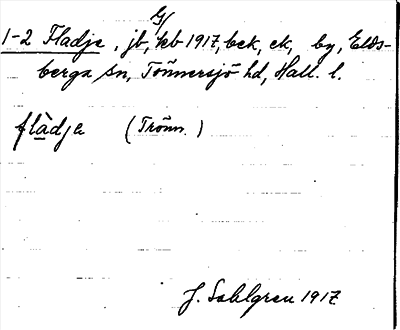 1-2 Fladje, jb, kb 1917, bek, ek, by, Elds-
berga sn, Tönnersjö hd, Hall. l.
flàdja (Trönn.)
J. Sahlgren 1917